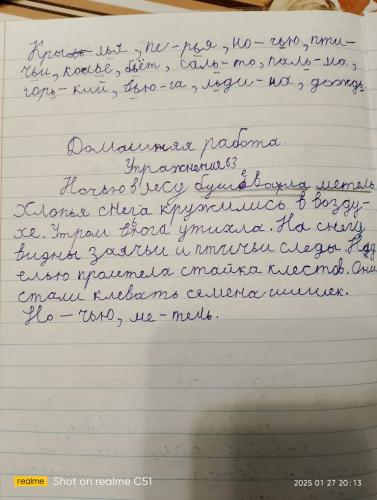 Крылья, пе-рья, но-чью, пти-
чьи, копьё, бьёт, саль-то, паль-ма,
горь-кий, вью-га, льди-на, дождь.
Домашняя работа.
Упражнение 63
Ночью в лесу бушевала метель
Хлопья снега кружились в возду-
хе. Утром вьюга утихла. На снегу
видны заячьи и птичьи следы. Над
елью пролетела стайка клестов. Они
стали клевать семена шишек.
Но-чью, ме-тель.
realme Shot on realme C51
2025 01 27 20:13